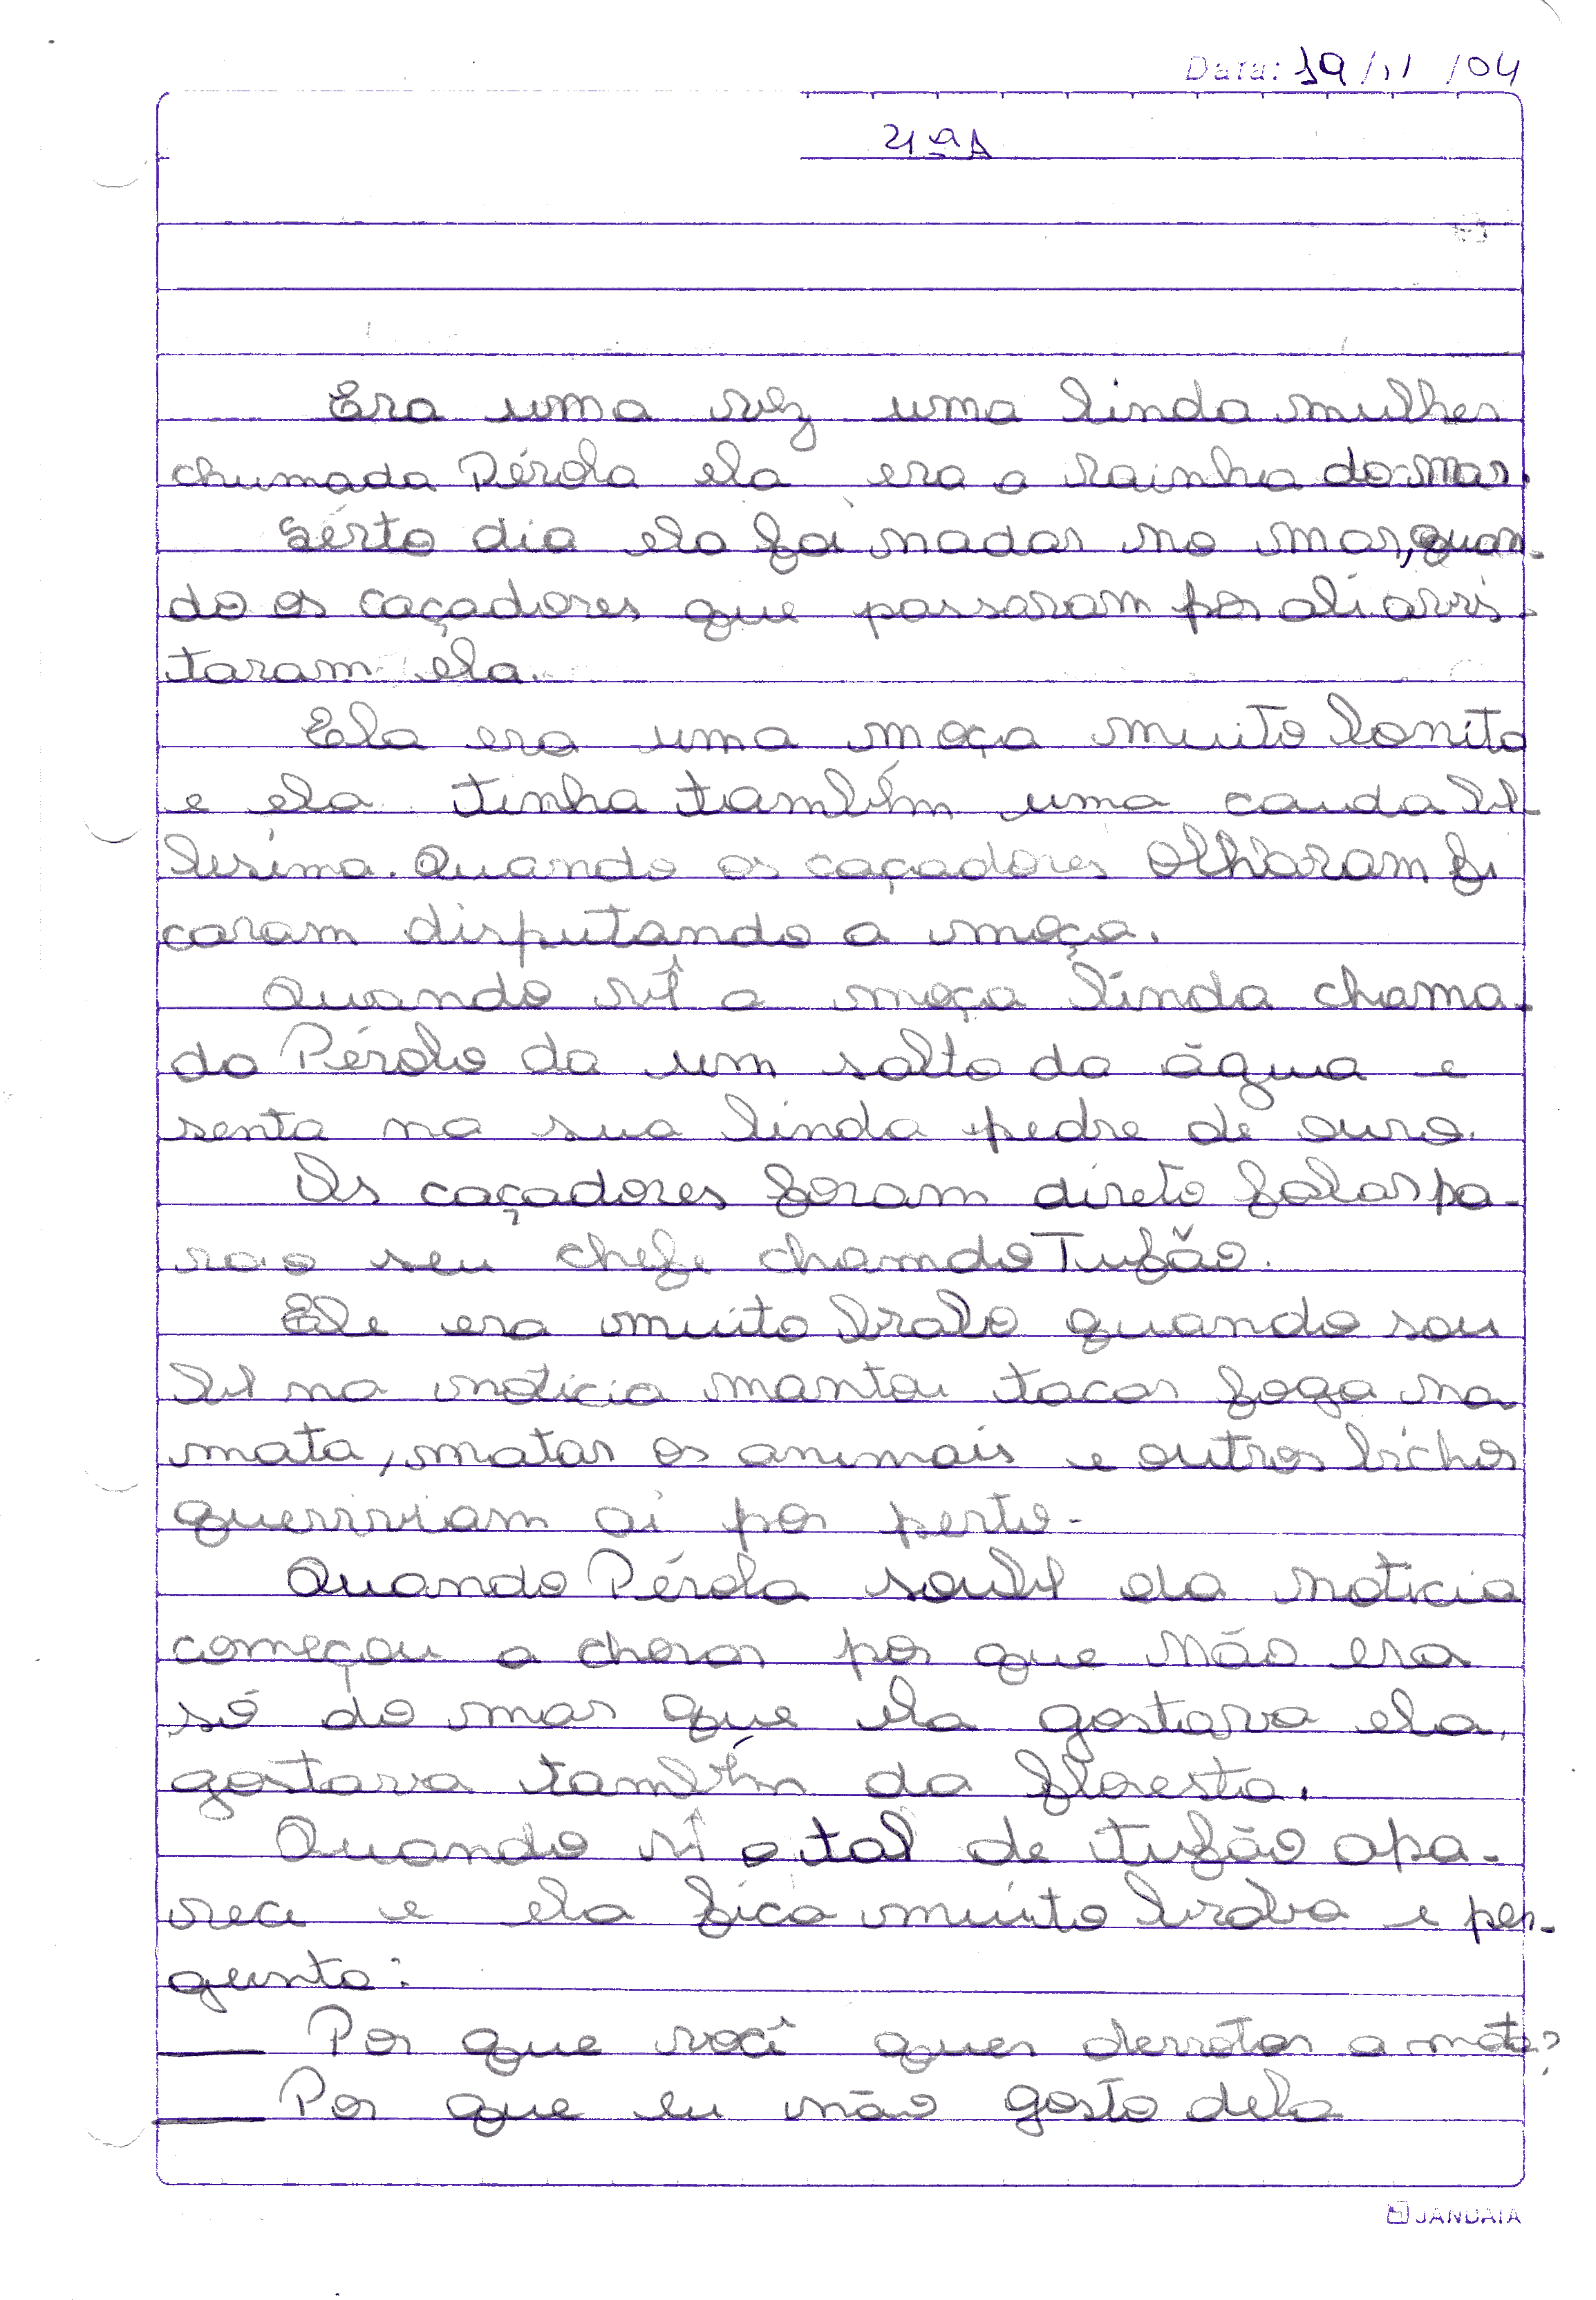 Data: 19/11/04
4ªA
Era uma vez uma linda mulher
chumada Pérola ela era a rainha do mar.
Sérto dia ela foi nadar no mar, quan-
do os caçadores que passaram por ali avis-
taram ela.
Ela era uma moça muito bonita
e ela tinha também uma cauda be
lesima. Quando os caçadores olharam fi
caram disputando a moça.
Quando vê a moça linda chama-
da Pérola da um salto da água e
senta na sua linda pedre de ouro.
Os caçadores foram direto falar pa-
ra o seu chefe chamdo Tufão.
Ele era muito brabo quando sou
be na noticia mantou tacar foga na
mata, matar os animais e outros bichos
que viviam ai por perto.
Quando Pérola soube da noticia
começou a chorar por que não era
só do mar que ela gostava ela,
gostava também da floresta.
Quando vê o tal de tufão apa-
rece e ela fica muito braba e per-
gunta:
— Por que você quer derrotar a mata?
— Por que eu não gosto dela
JANDAIA